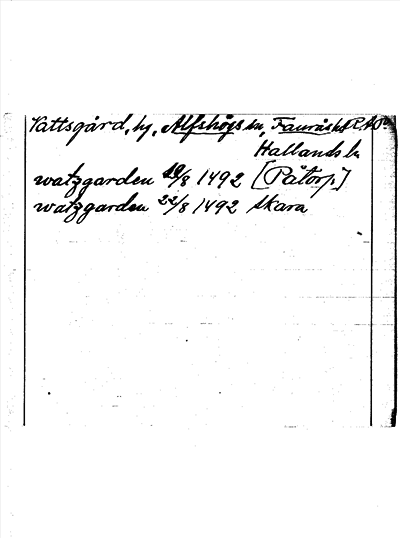 Vattsgård, by, Alfshögs sn, Faurås hd R.A.P.
Hallands l.
watzgarden 19/8 1492 [Påtorp.]
watzgarden 22/8 1492 Skara